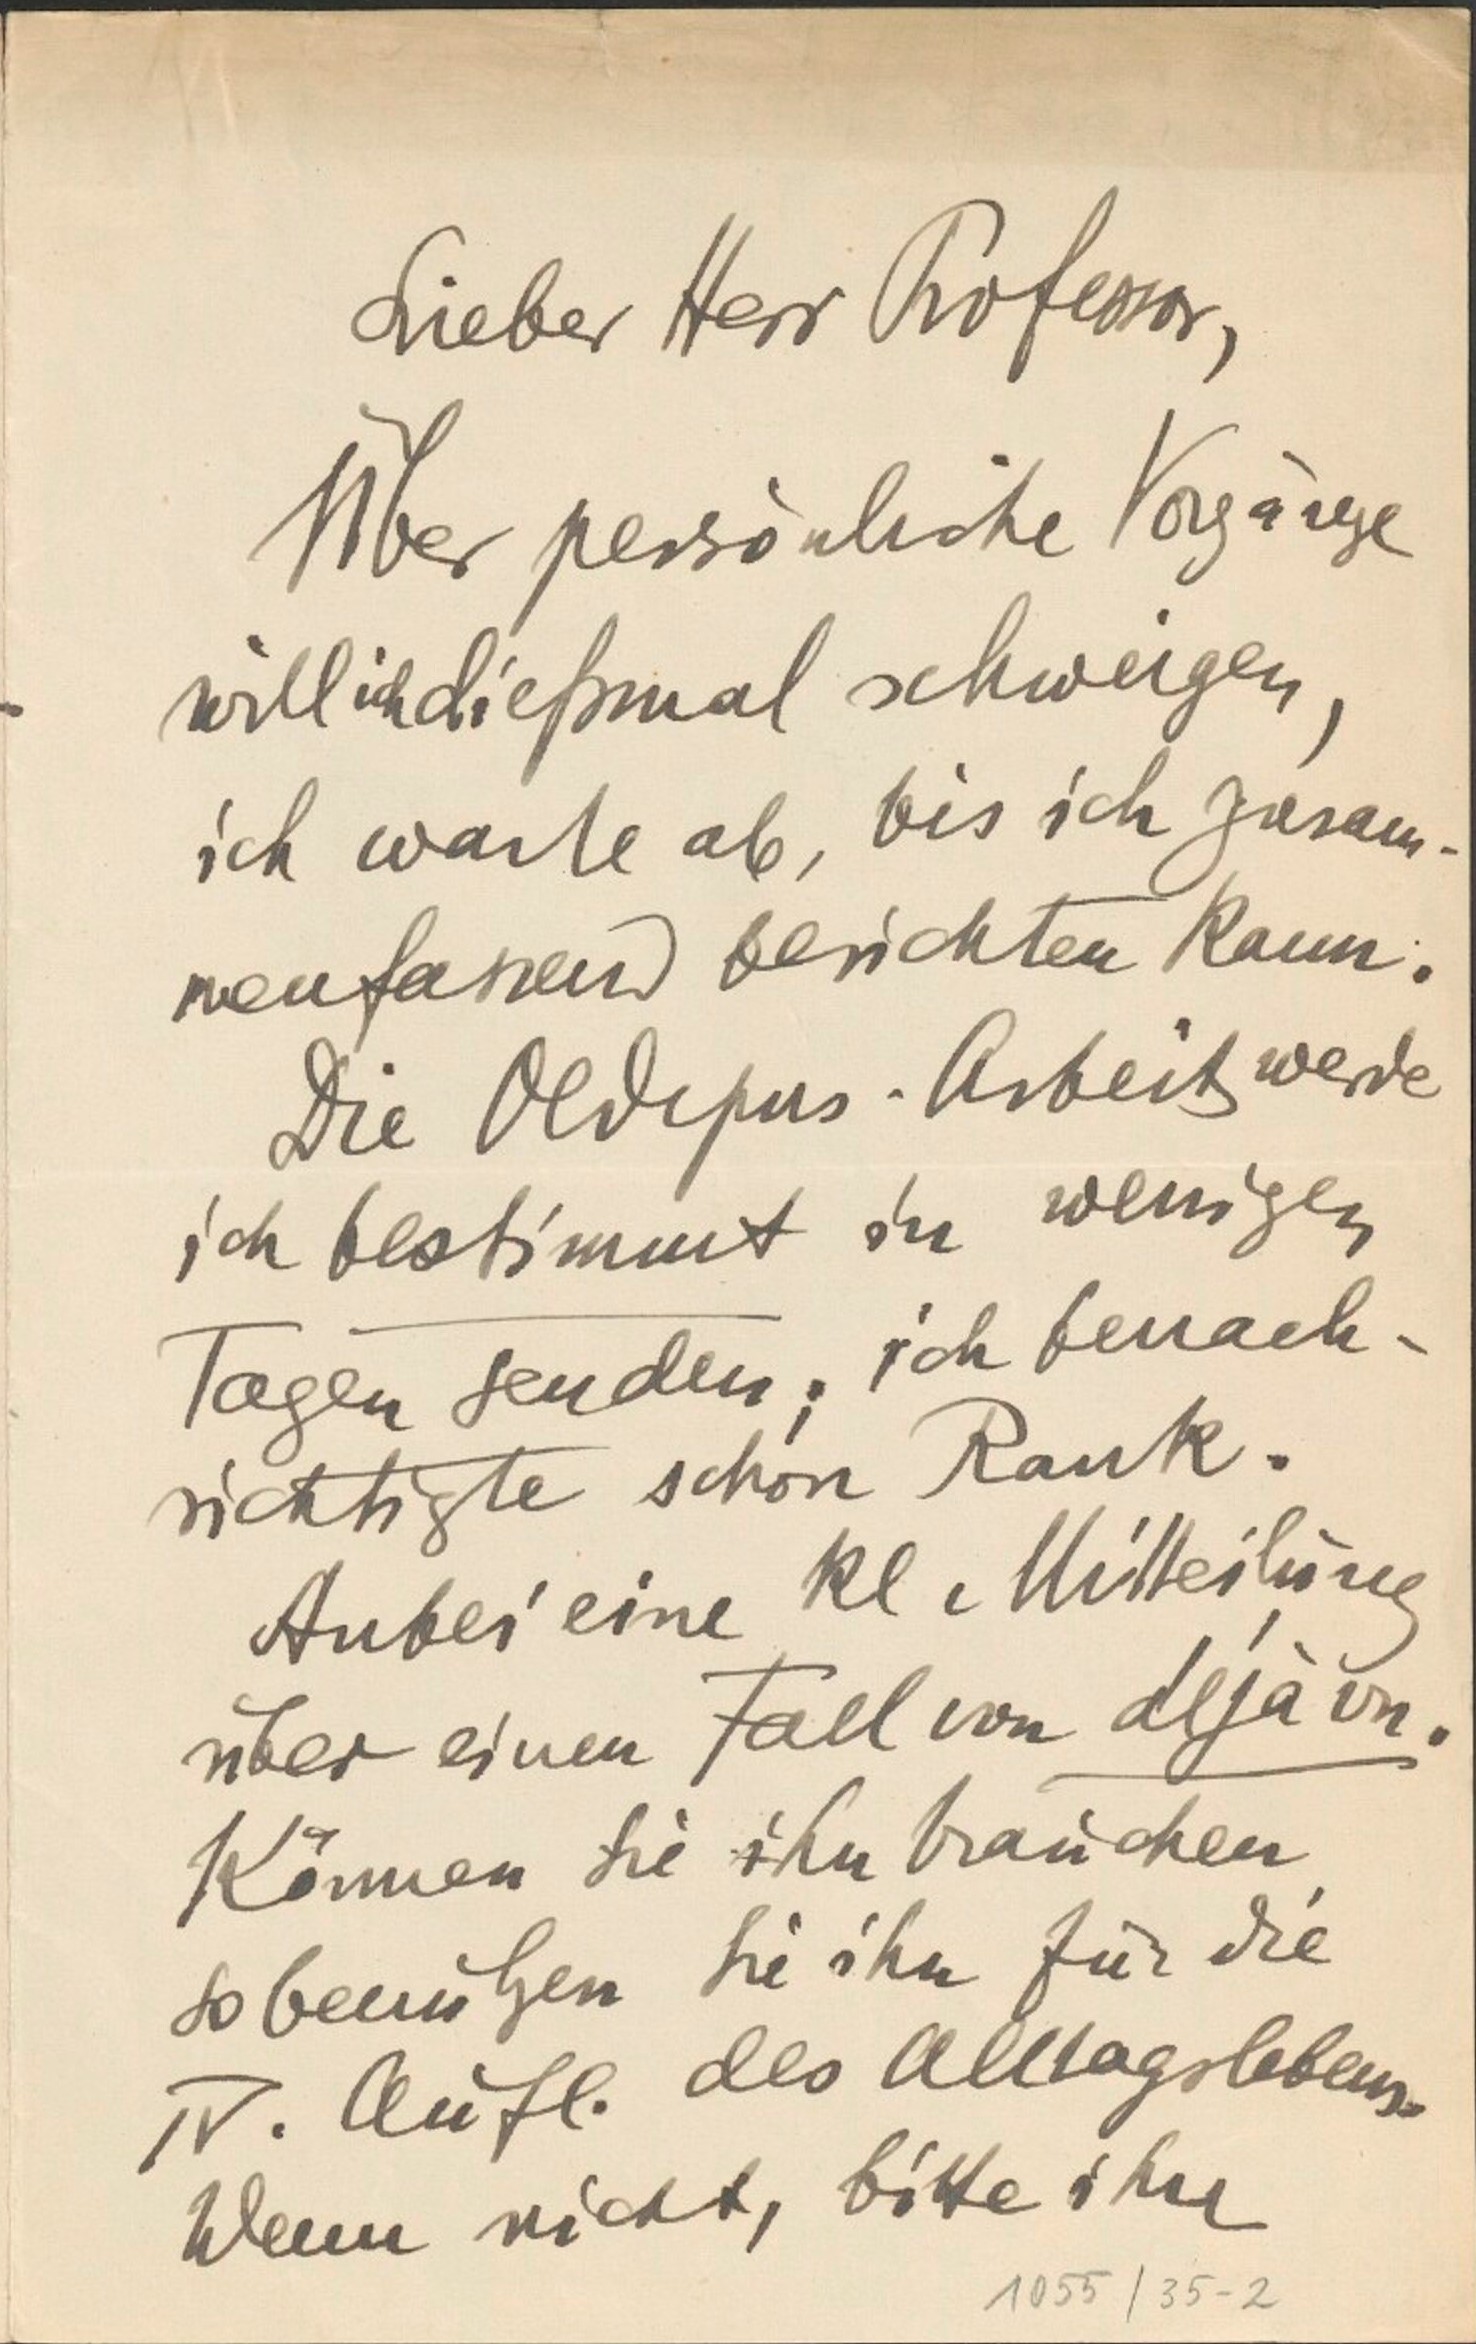 Lieber Herr Professor,
Über persönliche Vorgänge
will ich dießmal schweigen,
ich warte ab, bis ich zusam-
menfassend berichten kann.
Die Oedipus-Arbeit werde
ich bestimmt in wenigen
Tagen senden; ich benach-
richtigte schon Rank.
Anbei eine kl. Mitteilung
über einen Fall von déjà vu.
Können Sie ihn brauchen
so benützen Sie ihn für die
IV. Aufl. des Alltagslebens.
Wenn nicht, bitte ihn
1055/35-2